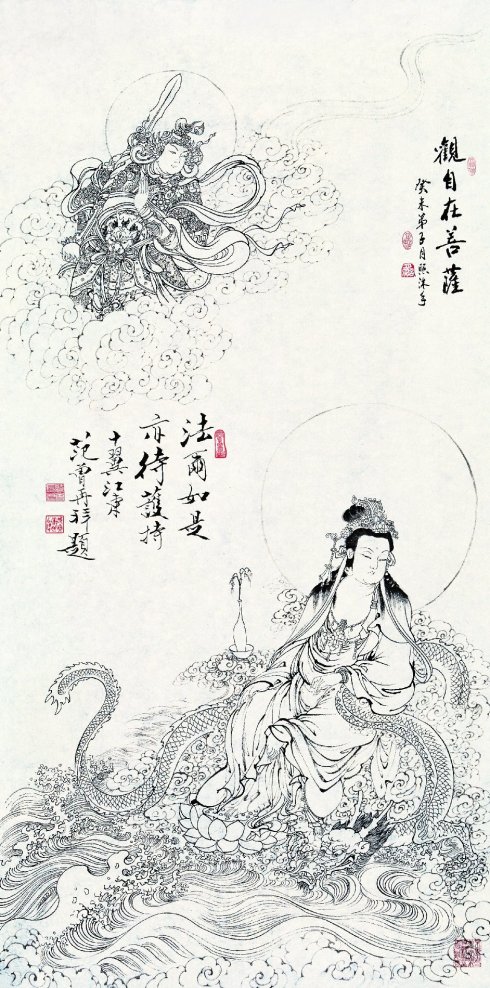 觀自在菩薩
癸未弟子月照沐手
法爾如是
亦待護持
十翼江東
范曾再拜題